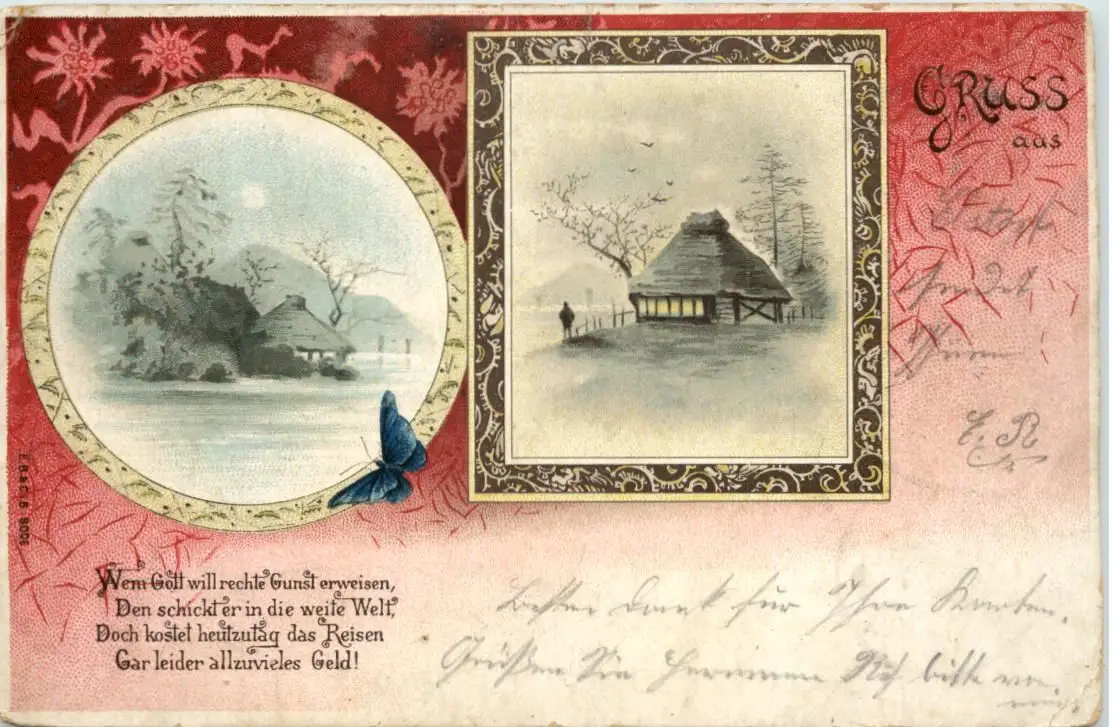 GRUSS
aus
sendet
Ihnen
E. R
E.B.&C.i.B. 9006
Wem Gott will rechte Gunst erweisen,
Den schickt er in die weite Welt,
Doch kostet heutzutag das Reisen
Gar leider allzuvieles Geld!
Besten Dank für Ihre Karten.
Grüßen Sie Hermine bitte von